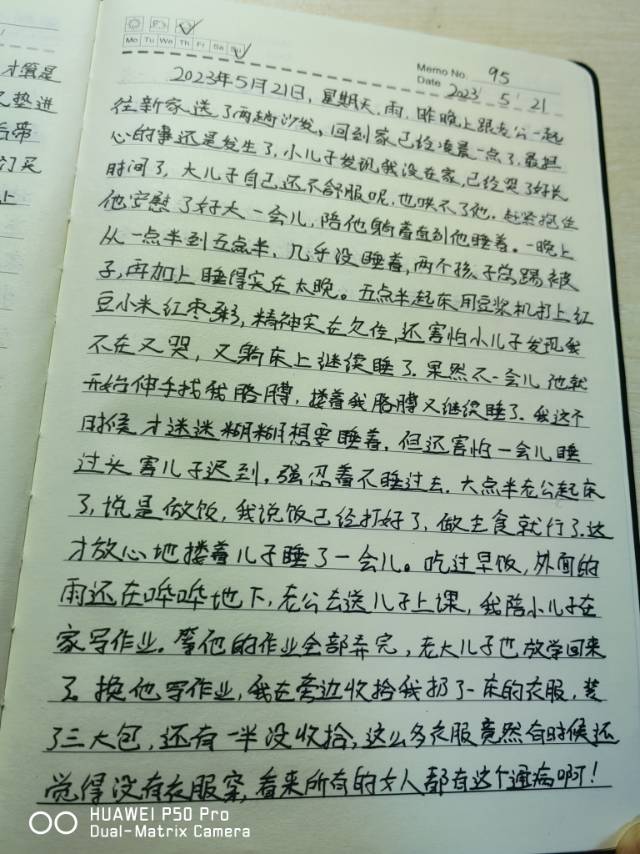 才算是
又垫进
后带
订买
上
Mo Tu We Th Fr Sa Su
Memo No. 95
Date 2023 / 5 / 21
2023年5月21日,星期天,雨,昨晚上跟老公一起
往新家送了两趟沙发,回到家已经凌晨一点了,最担
心的事还是发生了,小儿子发现我没在家,已经哭了好长
时间了,大儿子自己还不舒服呢,也哄不了他,赶紧抱住
他安慰了好大一会儿,陪他躺着直到他睡着。一晚上
从一点半到五点半,几乎没睡着,两个孩子总踢被
子,再加上睡得实在太晚。五点半起床用豆浆机打上红
豆小米红枣粥,精神实在欠佳,还害怕小儿子发现我
不在又哭,又躺床上继续睡了。果然不一会儿他就
开始伸手找我胳膊,搂着我胳膊又继续睡了。我这个
时候才迷迷糊糊想要睡着,但还害怕一会儿睡
过头害儿子迟到,强忍着不睡过去。六点半老公起床
了,说是做饭,我说饭已经打好了,做主食就行了,这
才放心地搂着儿子睡了一会儿。吃过早饭,外面的
雨还在哗哗地下,老公去送儿子上课,我陪小儿子在
家写作业。等他的作业全部弄完,老大儿子也放学回来
了。换他写作业,我在旁边收拾我扔了一床的衣服,装
了三大包,还有一半没收拾,这么多衣服竟然有时候还
觉得没有衣服穿,看来所有的女人都有这个通病啊!
HUAWEI P50 Pro
Dual-Matrix Camera